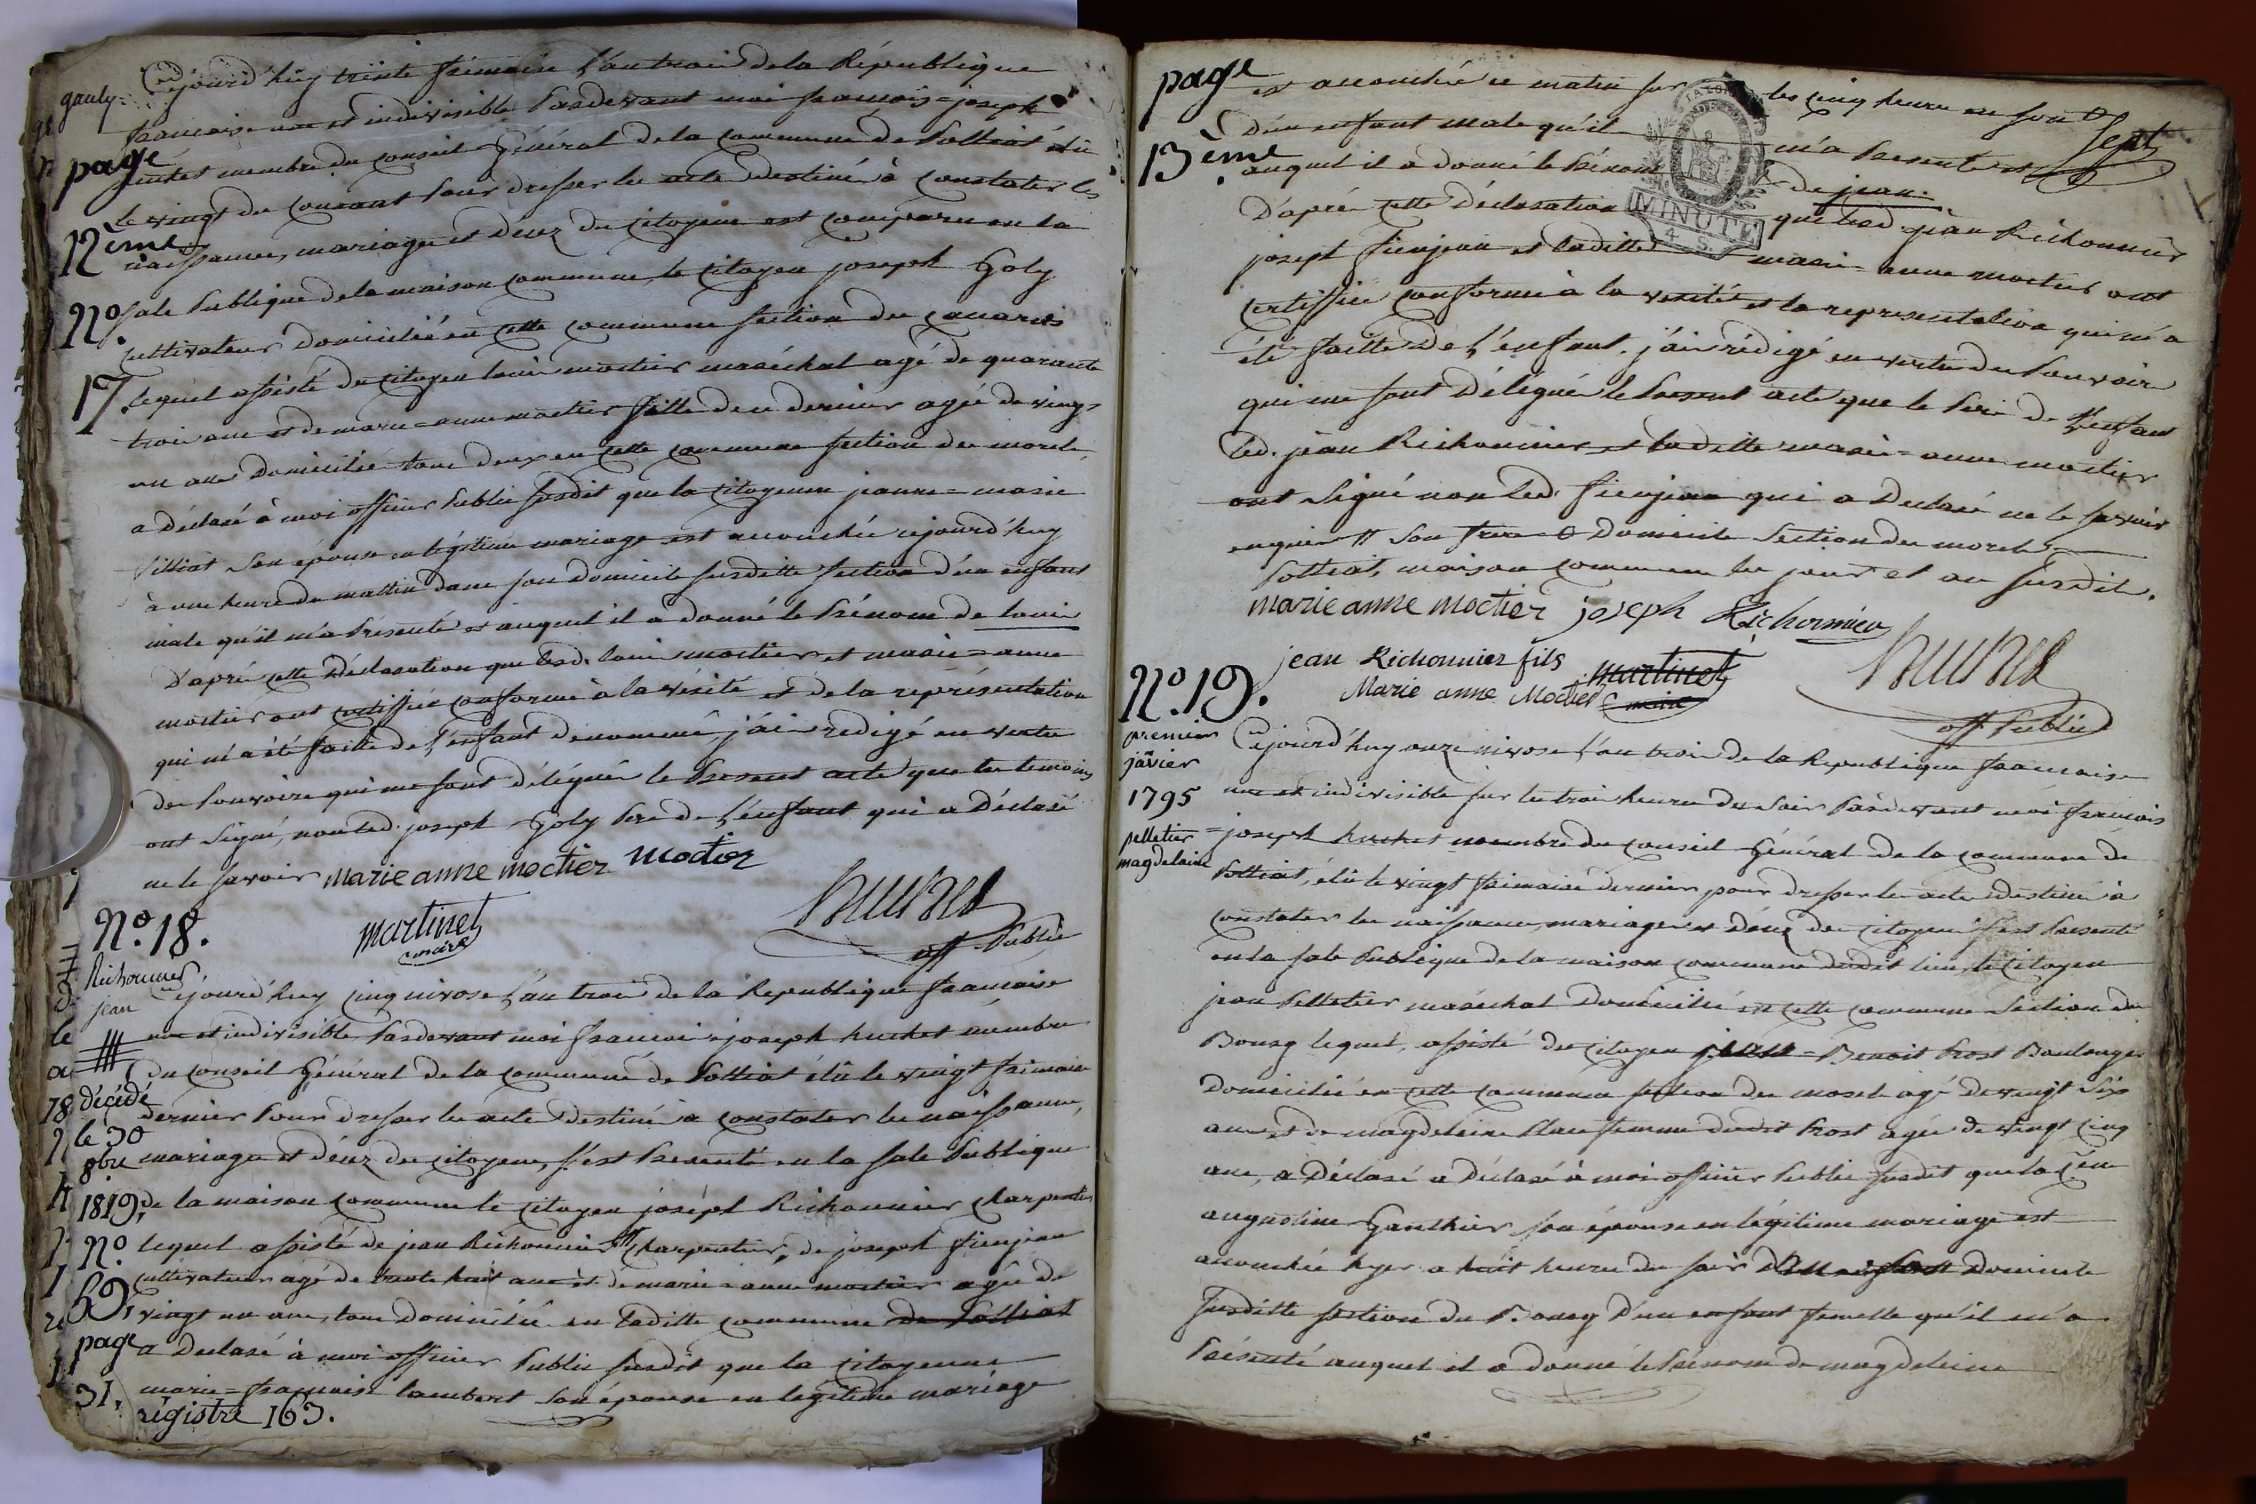 gauly
page
12ème
No.
17.
Cejourd'huy trente frimaire l'an troi de la République
francaise une et indivisible Pardevant moi francois=joseph
huchet membre du conseil Général de la commune de Polliat élû
le vingt du courant Pour dresser les acte destiné à constater les
naissances, mariages et décez des citoyens est comparu en la
sale Publique de la maison commune, le citoyen joseph Goly
cultivateur domicilié en cette commune section des
lequel assisté du citoyen louis moctier maréchal agé de quarante
troi ans et de marie=anne moctier fille de ce dernier agée de vingt
un ans domiciliés tous deux en cette commune section des morel
a déclaré à moi officier Public susdit que la citoyenne jeanne=marie
Silliat son épouse en légitime mariage est accouchée cejourd'huy
à une heure du mattin dans son domicile susditte section d'un enfant
male qu'il m'a Présenté et auquel il a donné le Prénom de louis
D'après cette Déclaration que lesd. louis moctier et marie=anne
moctier ont certiffiée conforme à la vérité et de la représentation
qui m'a été faitte de l'enfant denommé, j'ai redigé en vertu
des Pouvoirs qui me sont délégués le Present acte que les temoins
ont signé, non led. joseph Goly Pere de l'enfant qui a Déclaré
ne le savoir marie anne moctier Moctier
martinet
maire
huchet
off. Public
No. 18.
Richonnier
jean
décidé
le 30
8bre
1819,
No
59,
page
31,
régistre 163.
Cejourd'huy cinq nivose l'an troi de la Republique francaise
une et indivisible, Pardevant moi francoi=joseph huchet membre
du conseil Général de la commune de Polliat élû le vingt frimaire
dernier Pour dresser les acte destiné a constater les naissance,
mariage et décez des citoyens, s'est Presenté en la sale Publique
de la maison commune le citoyen joseph Richonnier charpentier
lequel assisté de jean Richonnier # charpentier, de joseph fienjean
cultivateur agé de trente huit ans et de marie=anne moctier agée de
vingt un ans, tous domiciliés en laditte commune de Polliat
a declaré à moi officier Public susdit que la citoyenne
marie=francoise lambert son épouse en legitime mariage
page
13ème
Sept
est accouchée ce matin sur les cinq heures en son D
D'un enfant male qu'il m'a Presenté et
auquel il a donné le Prénom de jean.
MINUTE
4 S.
D'après cette Déclaration que led. jean Richonnier
joseph fienjean et laditte marie=anne moctier ont
certiffiée conforme à la verité et la representation qui m'a
été faitte de l'enfant. j'ai rédigé en vertu des Pouvoirs
qui me sont délégués le Present acte que le Pere de l'enfant
led. jean Richonnier et laditte marie=anne moctier
ont signé non led. fienjean qui a declaré ne le savoir
enquis # son frere & Domicile Section des morel
Polliat, maison commune les jour et an susdit.
marie anne moctier joseph Richonnier
jean Richonnier fils martinet
Marie anne Moctier maire
huchet
off Public
No. 19.
premier
janvier
1795
pelletier
magdelaine
Cejourd'huy onze nivose l'an troi de la Republique francaise
une et indivisible sur les troi heures du soir Pardevant moi francois
=joseph huchet membre du conseil Général de la commune de
Polliat, élû le vingt frimaire dernier pour dresser les acte destiné à
constater les naissances, mariages et décez des citoyens s'est Presenté
en la sale Publique de la maison commune dudit lieu, le citoyen
jean Pelletier maréchal domicilié en cette commune Section du
Bourg lequel, assisté du citoyen =Benoit Prost Boulanger
domicilié en cette commune section des morel agé de vingt six
ans et de magdeleine femme dudit Prost agée de vingt cinq
ans, a Déclaré a Déclaré à moi officier Public susdit que la Cenne
augustine Gauthier son épouse en légitime mariage est
accouchée hyer a huit heures du soir domicile
susditte section du Bourg D'un enfant femelle qu'il m'a
Présenté auquel il a donné le Prénom de magdeleine